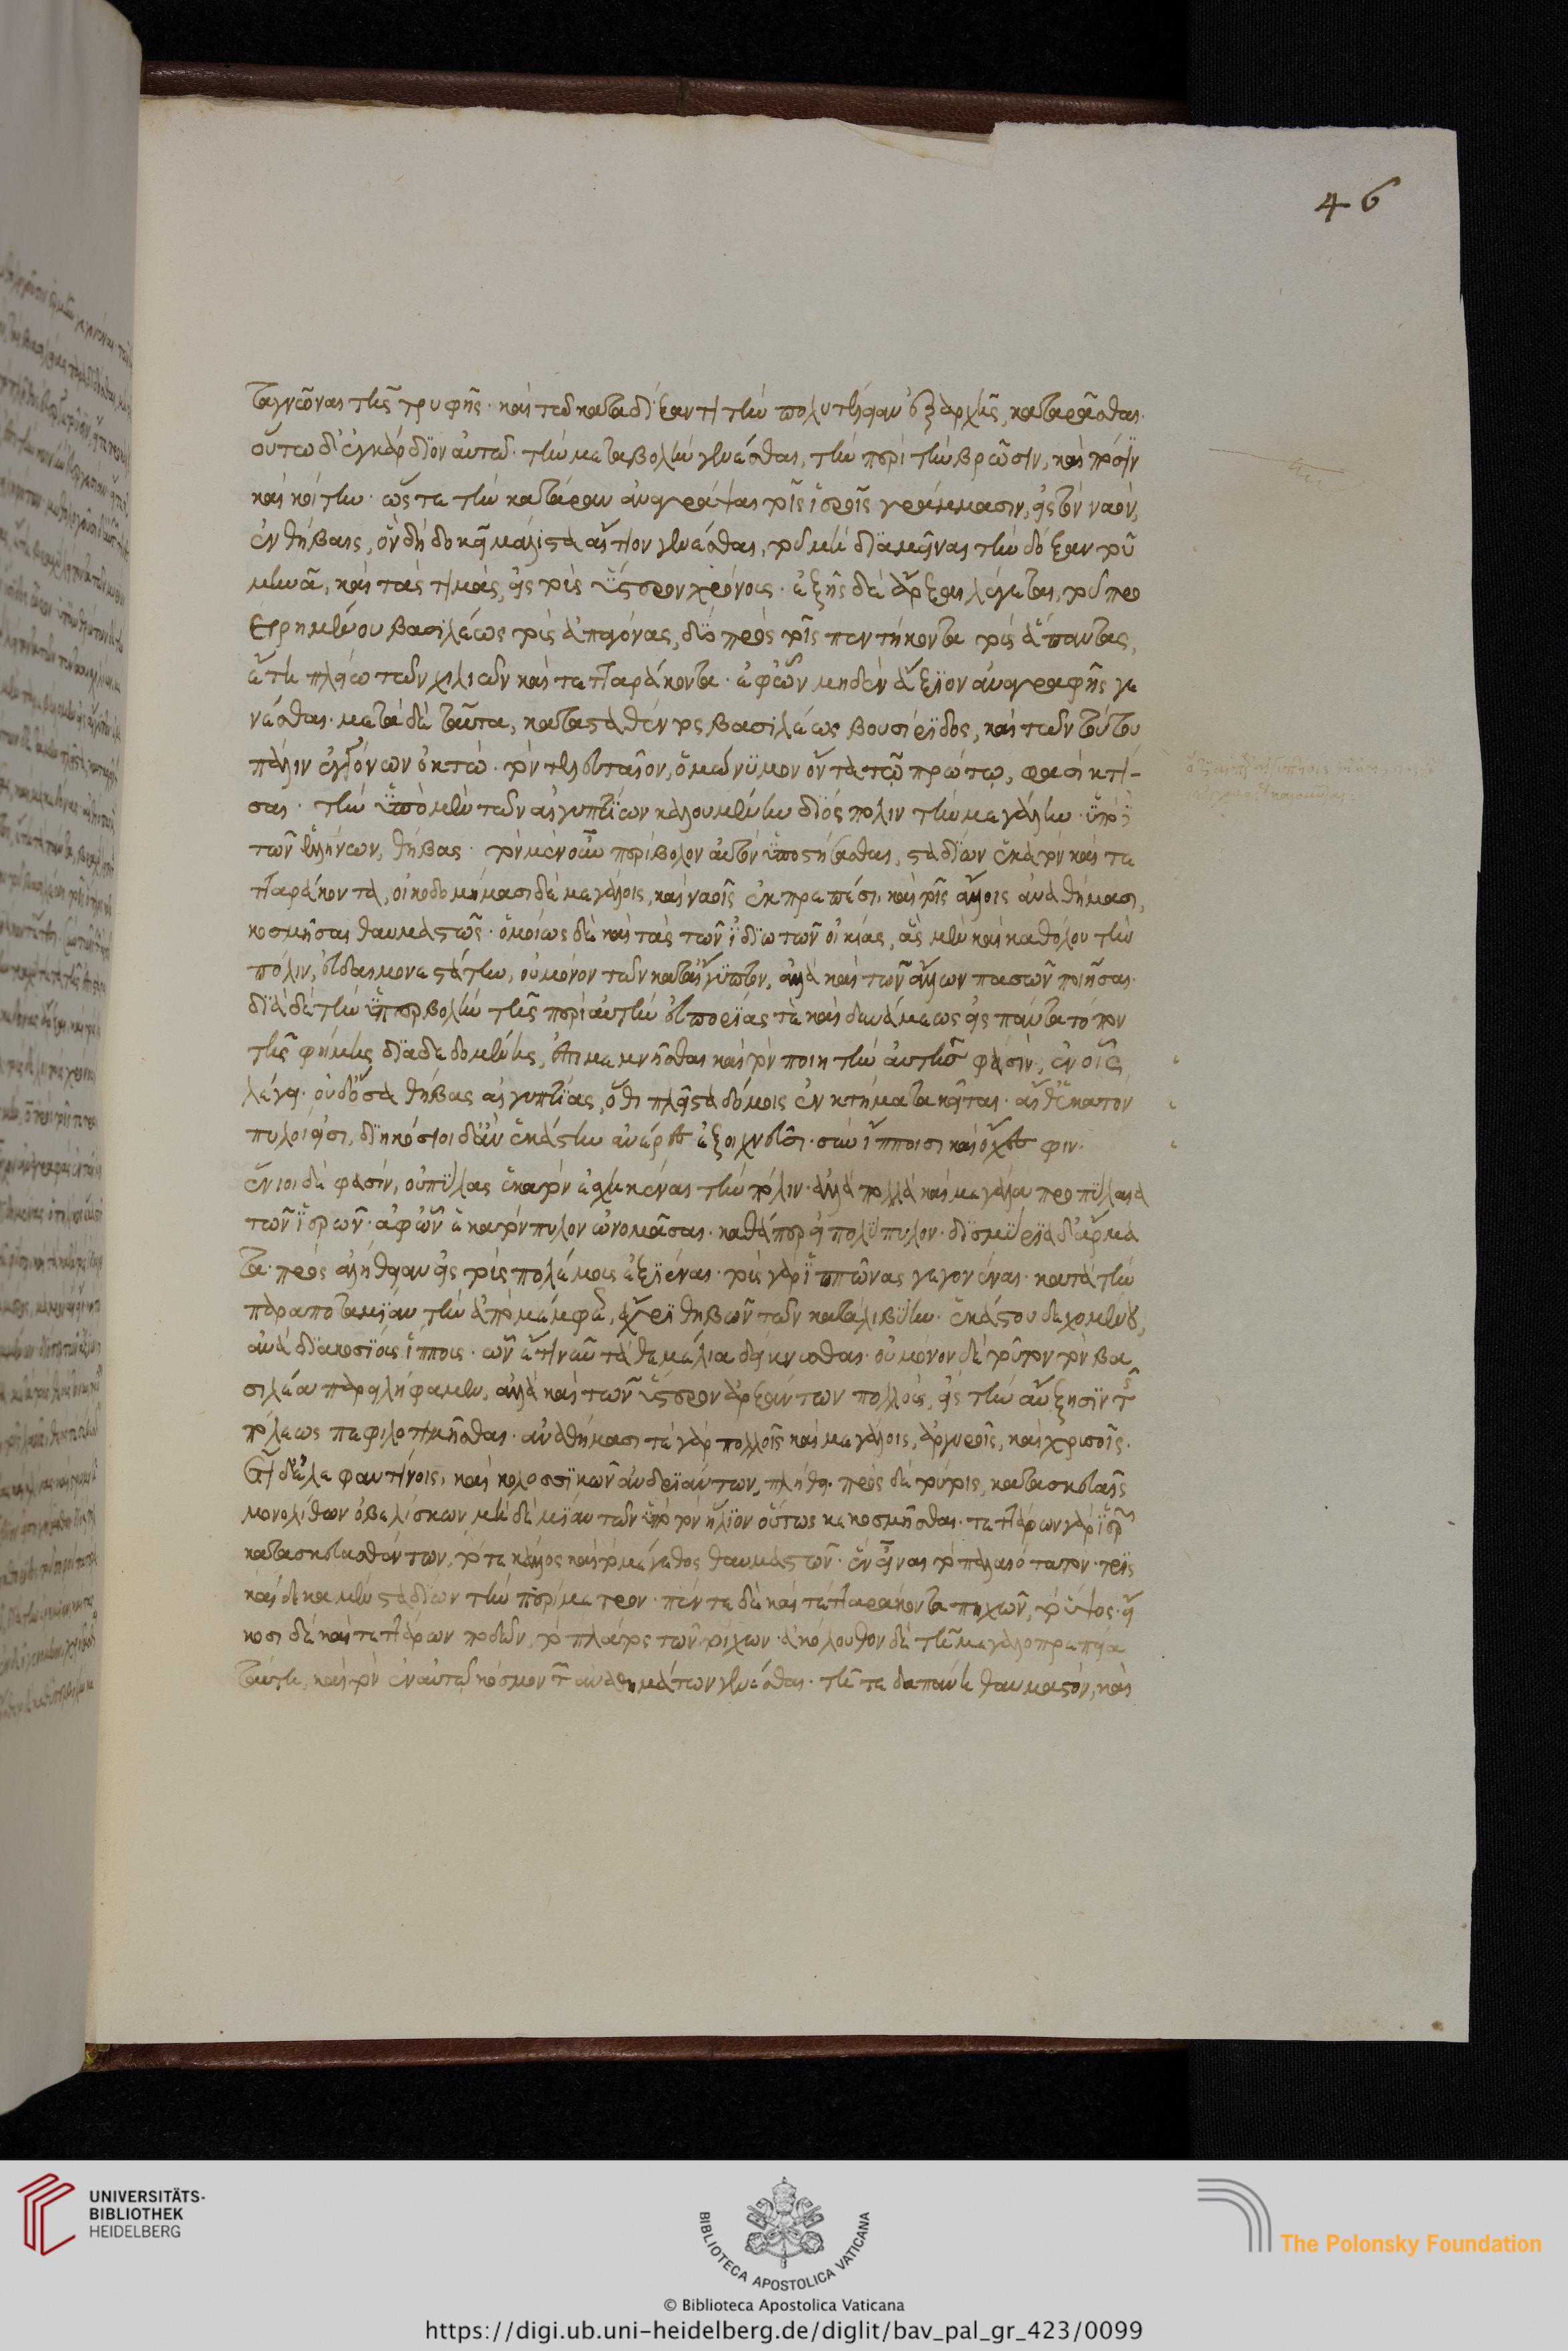 ταγνῶναι τῆς τρυφῆς· καὶ τῶ καταδείξαντι τὴν πολυτέλειαν ἐξαρχῆς, καταρᾶσθαι.
οὕτω δ' ἐγκάρδιον αὐτῶ· τὴν μεταβολὴν γενέσθαι, τὴν περὶ τὴν βρῶσιν, καὶ πόσιν
καὶ κοίτην· ὥστε τὴν κατάραν ἀναγράψαι τοῖς ἱεροῖς γράμμασιν, εἰς τὸν ναὸν,
ἐν θήβαις, ὃν δὴ δοκεῖ μάλιστα αἴτιον γενέσθαι, τοῦ μὴ διαμεῖναι τὴν δόξαν τοῦ
μηνᾶ, καὶ τὰς τιμὰς, εἰς τοὺς ὕστερον χρόνους· ἑξῆς δὲ ἄρξαι λέγεται, τοῦ προ
ειρημένου βασιλέως τοὺς ἀπογόνους, δύο πρὸς τοῖς πεντήκοντα τοὺς ἅπαντας,
ἔτη πλείω τῶν χιλίων καὶ τετταράκοντα· ἐφ' ὧν μηδὲν ἄξιον ἀναγραφῆς γε
νέσθαι· μετὰ δὲ ταῦτα, κατασταθέντος βασιλέως βουσίριδος, καὶ τῶν τούτου
πάλιν ἐγγόνων ὀκτώ· τὸν τελευταῖον, ὁμώνυμον ὄντα τῷ πρώτῳ, φασὶ κτί-
σαι· τὴν ὑπὸ μὲν τῶν αἰγυπτίων καλουμένην διὸς πόλιν τὴν μεγάλην· ὑπὸ
τῶν ἑλλήνων, θήβας· τὸν μὲν οὖν περίβολον αὐτὸν ὑποστήσασθαι, σταδίων ἑκατὸν καὶ τε
τταράκοντα, οἰκοδομήμασι δὲ μεγάλοις, καὶ ναοῖς ἐκπρεπέσι, καὶ τοῖς ἄλλοις ἀναθήμασι,
κοσμῆσαι θαυμαστῶς· ὁμοίως δὲ καὶ τὰς τῶν ἰδιωτῶν οἰκίας, ἃς μὲν καὶ καθόλου τὴν
πόλιν, εὐδαιμονεστάτην, οὐ μόνον τῶν κατ' αἴγυπτον, ἀλλὰ καὶ τῶν ἄλλων πασῶν ποιῆσαι·
διὰ δὲ τὴν ὑπερβολὴν τῆς περὶ αὐτὴν εὐπορίας τὲ καὶ δυνάμεως εἰς πάντα τόπον
τῆς φήμης διαδεδομένης, ἐπιμεμνῆσθαι καὶ τὸν ποιητὴν αὐτῆς φασὶν, ἐν οἷς
λέγει· οὐδ' ὅσα θήβας αἰγυπτίας, ὅθι πλεῖστα δόμοις ἐν κτήματα κεῖται· αἵ θ' ἑκατόν
πυλοι εἰσι, διηκόσιοι δ' ἀν' ἑκάστην ἀνέρες ἐξοιχνεῦσι· σὺν ἵπποισι καὶ ὄχεσφιν·
ἔνιοι δὲ φασὶν, οὐ πύλας ἑκατὸν ἐσχηκέναι τὴν πόλιν· ἀλλὰ πολλὰ καὶ μεγάλα προπύλαια
τῶν ἱερῶν· ἀφ' ὧν ἑκατόνπυλον ὠνομάσαι· καθάπερ εἰ πολύπυλον· δισμύρια δ' ἅρμα
τα· πρὸς ἀλήθειαν εἰς τοὺς πολέμους ἐξιέναι· τοὺς γὰρ ἱππῶνας γεγονέναι· κατὰ τὴν
παραποταμίαν τὴν ἀπὸ μέμφεως, ἄχρι θηβῶν τῶν κατὰ λιβύην· ἑκάστου δεχομένου,
ἀνὰ διακοσίους ἵππους· ὧν ἔτι νῦν τὰ θεμέλια δείκνυσθαι· οὐ μόνον δὲ τοῦτον τὸν βα
σιλέα παρειλήφαμεν, ἀλλὰ καὶ τῶν ὕστερον ἀρξάντων πολλοὺς, εἰς τὴν αὔξησιν τῆς
πόλεως πεφιλοτιμῆσθαι· ἀναθήμασι τὲ γὰρ πολλοῖς καὶ μεγάλοις, ἀργυροῖς, καὶ χρυσοῖς·
ἔτι δ' ἐλεφαντίνοις, καὶ κολοσσικῶν ἀνδριάντων, πλήθει· πρὸς δὲ τούτοις, κατασκευαῖς
μονολίθων ὀβελίσκων μηδεμίαν τῶν ὑπὸ τὸν ἥλιον οὕτως κεκοσμῆσθαι· τεττάρων γὰρ ἱερῶν
κατασκευασθέντων, τό τε κάλλος καὶ τὸ μέγεθος θαυμαστῶν· ἓν εἶναι τὸ παλαιότατον· τρις
καίδεκα μὲν σταδίων τὴν περίμετρον· πέντε δὲ καὶ τετταράκοντα πηχῶν, τὸ ὕψος· εἴ
κοσι δὲ καὶ τεττάρων ποδῶν, τὸ πλάτος τῶν τοίχων· ἀκόλουθον δὲ τῇ μεγαλοπρεπείᾳ
ταύτῃ, καὶ τὸν ἐν αὐτῶ κόσμον τῶν ἀναθημάτων γενέσθαι· τῇ τε δαπάνῃ θαυμαστόν, καὶ
46
UNIVERSITÄTS-
BIBLIOTHEK
HEIDELBERG
BIBLIOTECA APOSTOLICA VATICANA
The Polonsky Foundation
© Biblioteca Apostolica Vaticana
https://digi.ub.uni-heidelberg.de/diglit/bav_pal_gr_423/0099